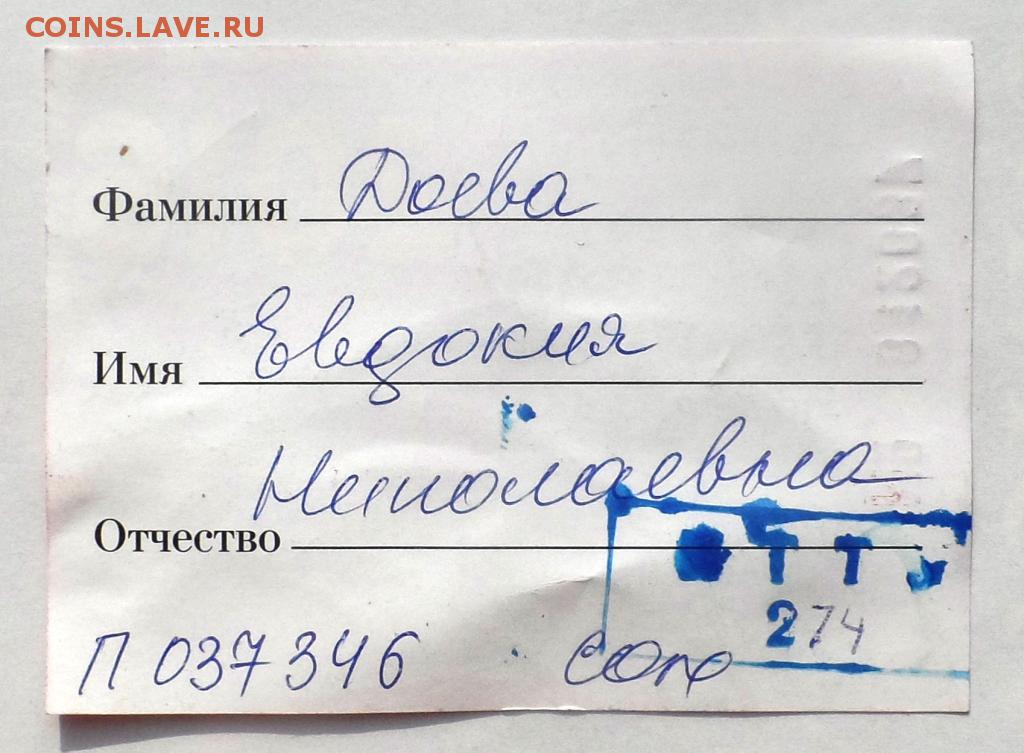 COINS.LAVE.RU
Фамилия Доева
Имя Евдокия
Отчество Николаевна
ТТУ
274
П 037346